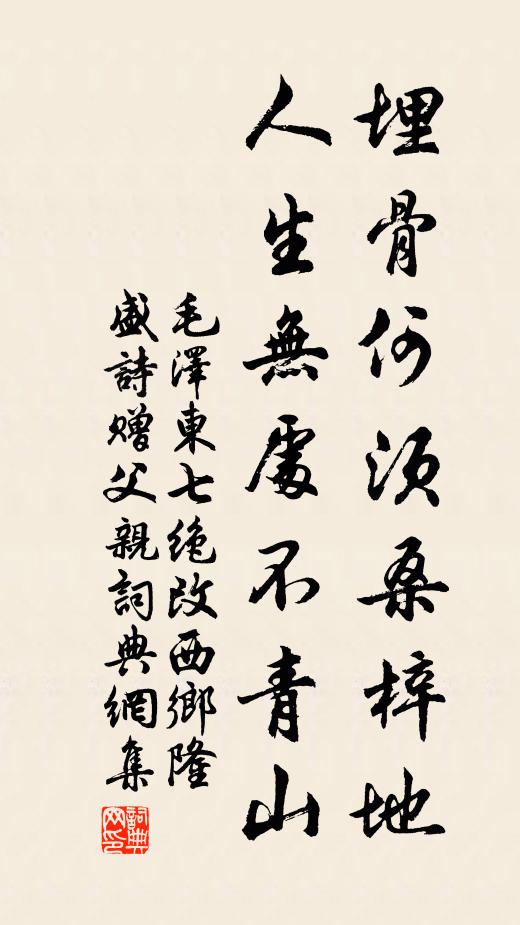 埋骨何須桑梓地
人生無處不青山
毛澤東七绝改西鄉隆
盛詩赠父親詞典網集
詞典
网印